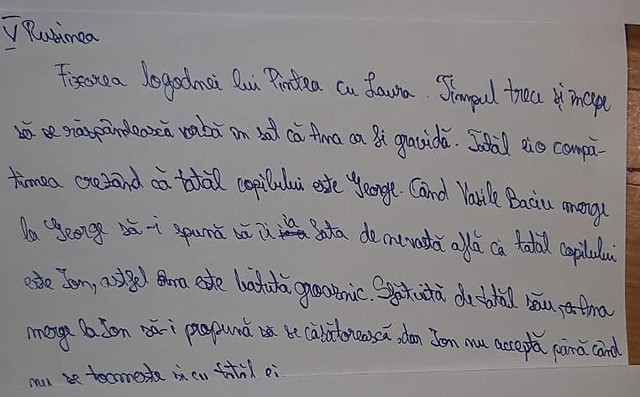 V Rusinea
Fixarea logodnei lui Pintea cu Laura. Timpul trece și începe
să se răspândească vorbă în sat că Ana ar fi gravidă. Tatăl ei o compă-
timea crezând că tatăl copilului este George. Când Vasile Baciu merge
la George să-i spună să îi ia fata de nevastă află că tatăl copilului
este Ion, astfel Ana este bătută groaznic. Sfătuită de tatăl său, Ana
merge la Ion să-i propună să se căsătorească, dar Ion nu acceptă până când
nu se tocmește și cu tatăl ei.